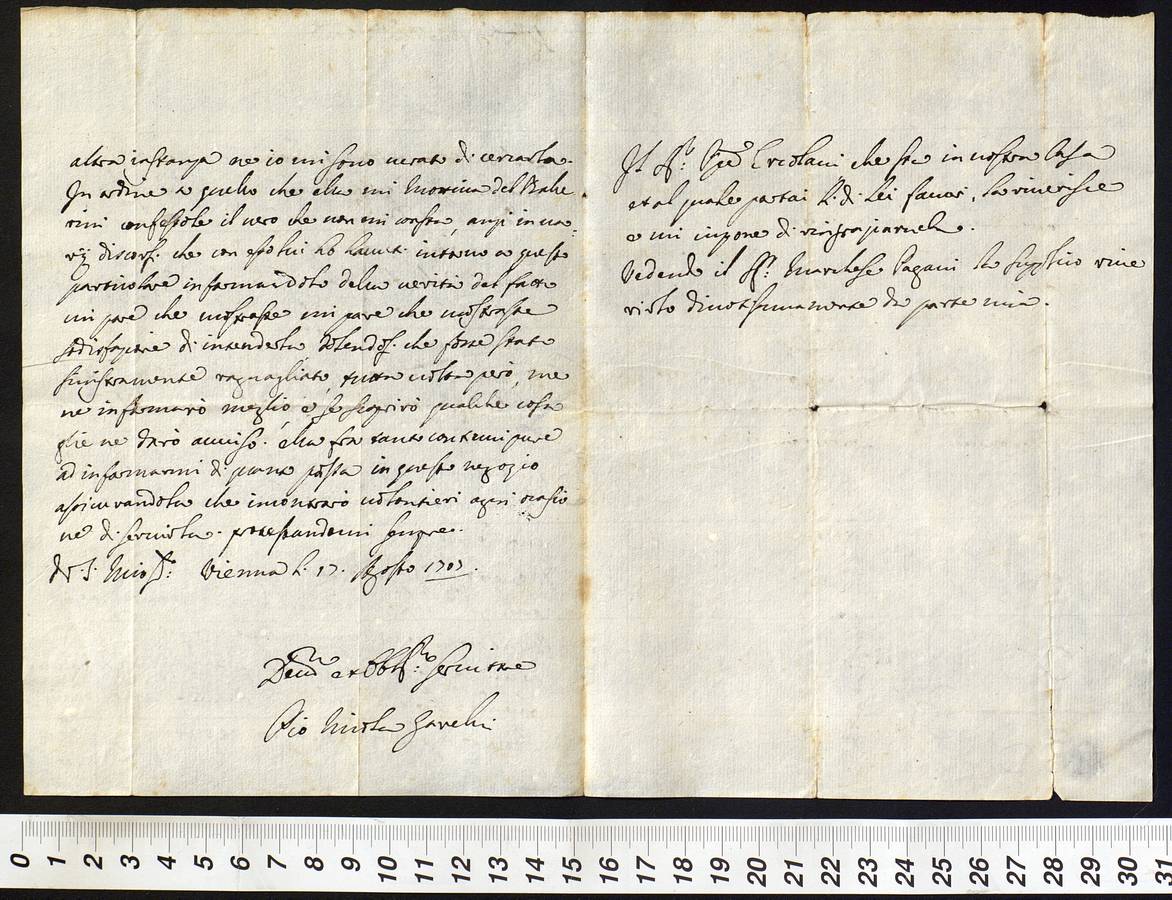 altra instanza ne io mi sono curato di cercarla.
In ordine a quello che ella mi motiva del
rini confessole il vero che non mi consta, anzi in va-
rij discorsi che con esso lui hò havuti intorno a questo
particolare informandolo della verità del fatto
mi pare che mostrasse mi pare che mostrasse
sodisfazione di intenderla dolendosi che fosse stato
sinistramente ragguagliato, tutta volta però me
ne informarò meglio e se scoprirò qualche cosa
glie ne darò avviso. ella fra tanto continui pure
ad informarmi di quanto passa in questo negozio
assicurandola che incontrarò volontieri ogni ocasio
ne di servirla. protestandomi sempre.
di V. S. Vienna li 17. Agosto 1707.
Dev.mo et Obblig.mo servitore
Pio Nicola Garelli
Il Sig.r Ercolani che sta in nostra Casa
et al quale portai li di Lei favori, la riverisce
e mi impone di ringraziarvela.
Vedendo il Sig.r Marchese Pagani la supplico rive
rirlo divotissimamente da parte mia.
0 1 2 3 4 5 6 7 8 9 10 11 12 13 14 15 16 17 18 19 20 21 22 23 24 25 26 27 28 29 30 31